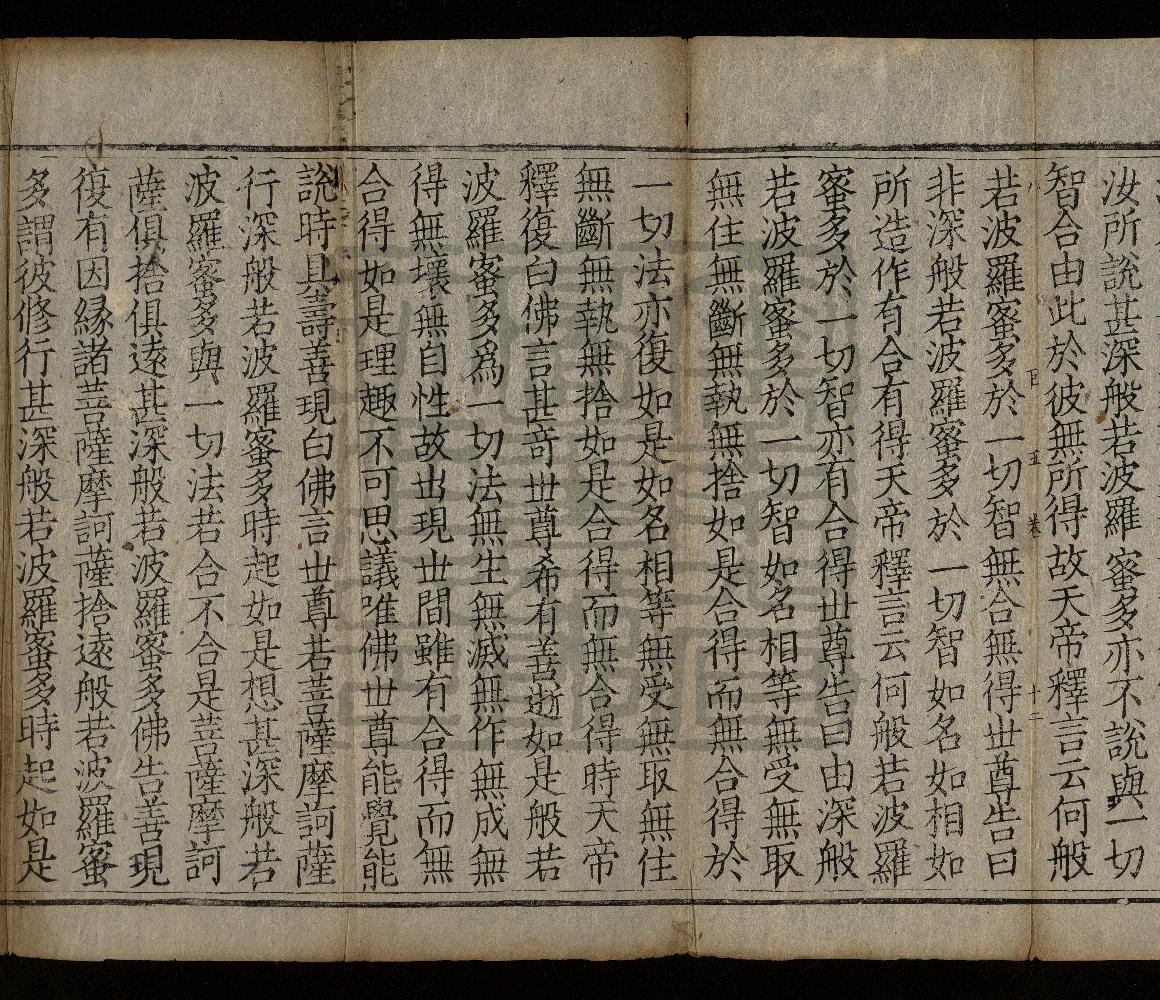 汝所說甚深般若波羅蜜多亦不說與一切
智合由此於彼無所得故天帝釋言云何般
巨 五 卷 十二
若波羅蜜多於一切智無合無得世尊告曰
非深般若波羅蜜多於一切智如名如相如
所造作有合有得天帝釋言云何般若波羅
蜜多於一切智亦有合得世尊告曰由深般
若波羅蜜多於一切智如名相等無受無取
無住無斷無執無捨如是合得而無合得於
一切法亦復如是如名相等無受無取無住
無斷無執無捨如是合得而無合得時天帝
釋復白佛言甚奇世尊希有善逝如是般若
波羅蜜多為一切法無生無滅無作無成無
得無壞無自性故出現世間雖有合得而無
合得如是理趣不可思議唯佛世尊能覺能
說時具壽善現白佛言世尊若菩薩摩訶薩
行深般若波羅蜜多時起如是想甚深般若
波羅蜜多與一切法若合不合是菩薩摩訶
薩俱捨俱遠甚深般若波羅蜜多佛告善現
復有因緣諸菩薩摩訶薩捨遠般若波羅蜜
多謂彼修行甚深般若波羅蜜多時起如是